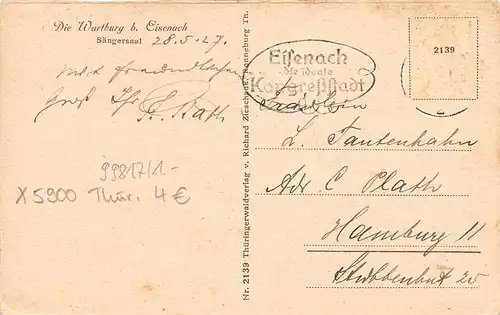 Die Wartburg b. Eisenach
Sängersaal 28.5.27.
Mit freundlichem
Gruß Ihr C. Plath
99817/1.-
X5900 Thür. 4 €
Nr. 2139 Thüringerwaldverlag v. Richard Zieschank, Ronneburg Th.
Eisenach
die ideale
Kongreßstadt
2139
Fräulein
L. Tautenhahn
Adr C Plath
Hamburg 11
Stubbenhuk 20